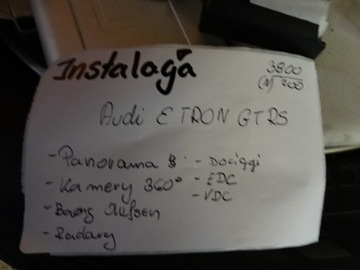 Instalaga
3800
(N) 200
Audi E TRON GT RS
- Panorama 8
- Kamery 360°
- Bang Olufsen
- Radary
- Dociggi
- EDC
- VDC